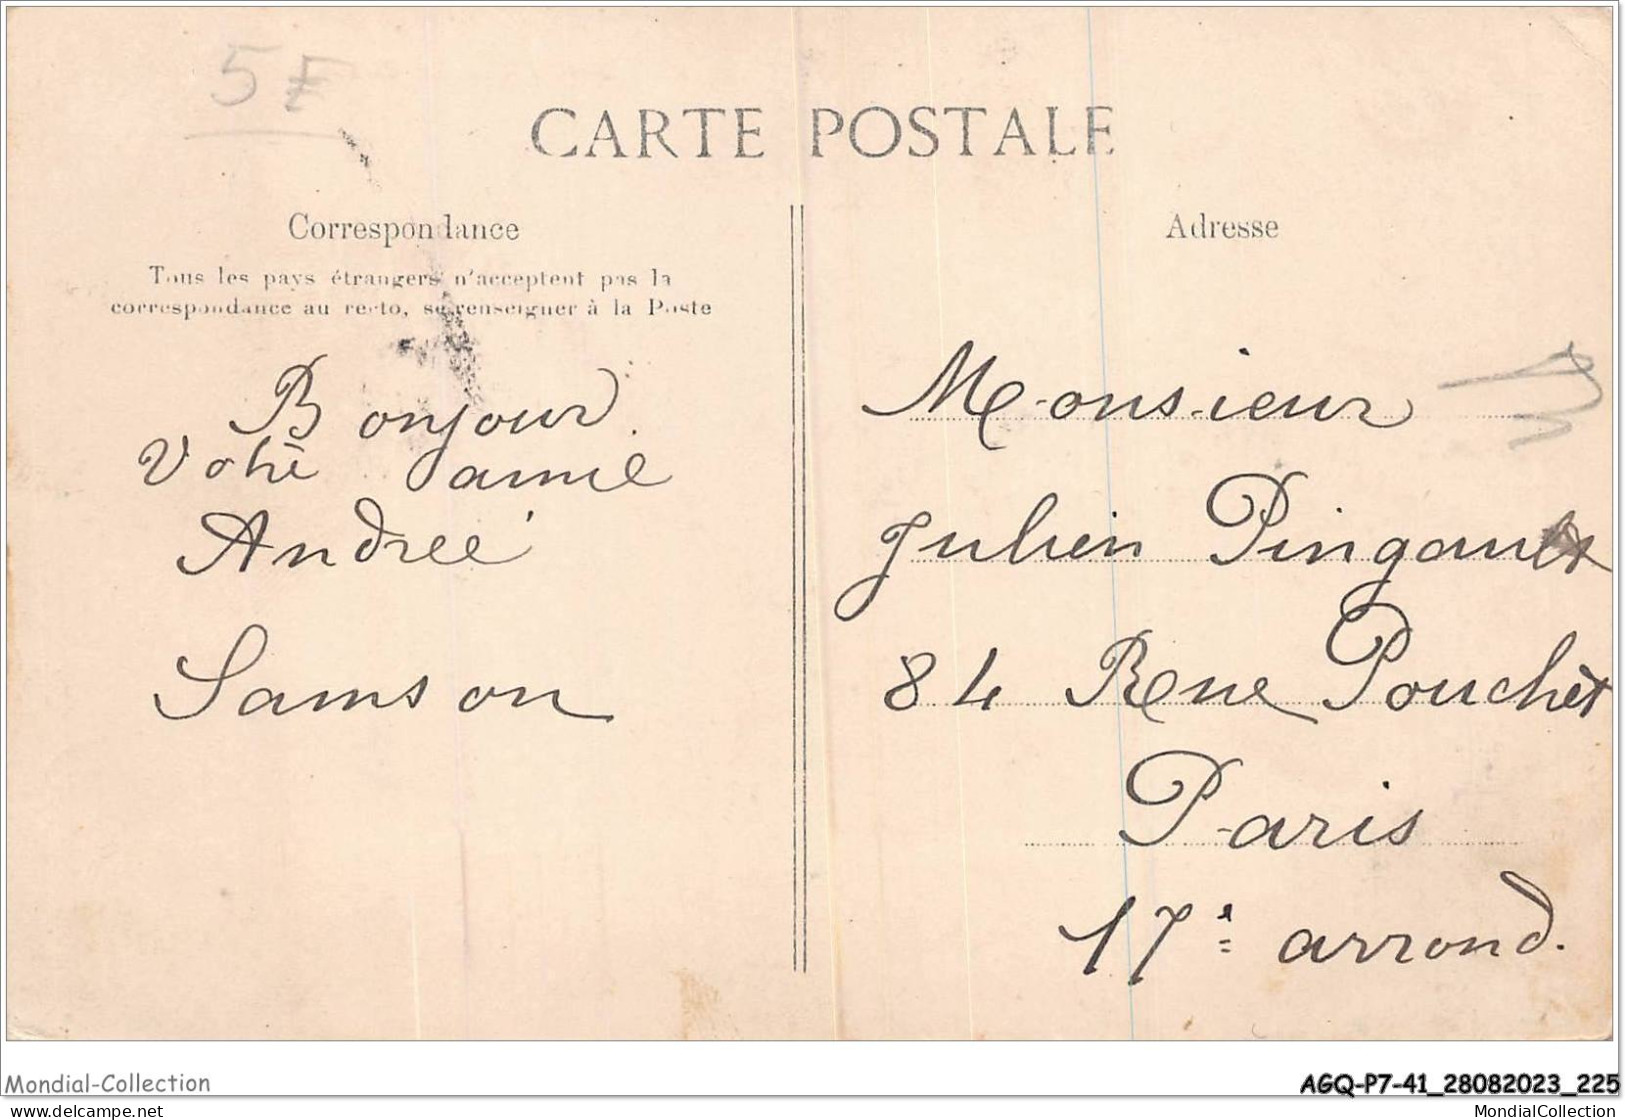 5F
CARTE POSTALE
Correspondance
Tous les pays étrangers n'acceptent pas la
correspondance au recto, se renseigner à la Poste
Bonjour
Votre amie
Andreé
Samson
Adresse
Monsieur
Julien Pingault
84 Rue Pouchèt
Paris
17e arrond.
Mondial-Collection
AGQ-P7-41_28082023_225
delcampe.net
MondialCollection